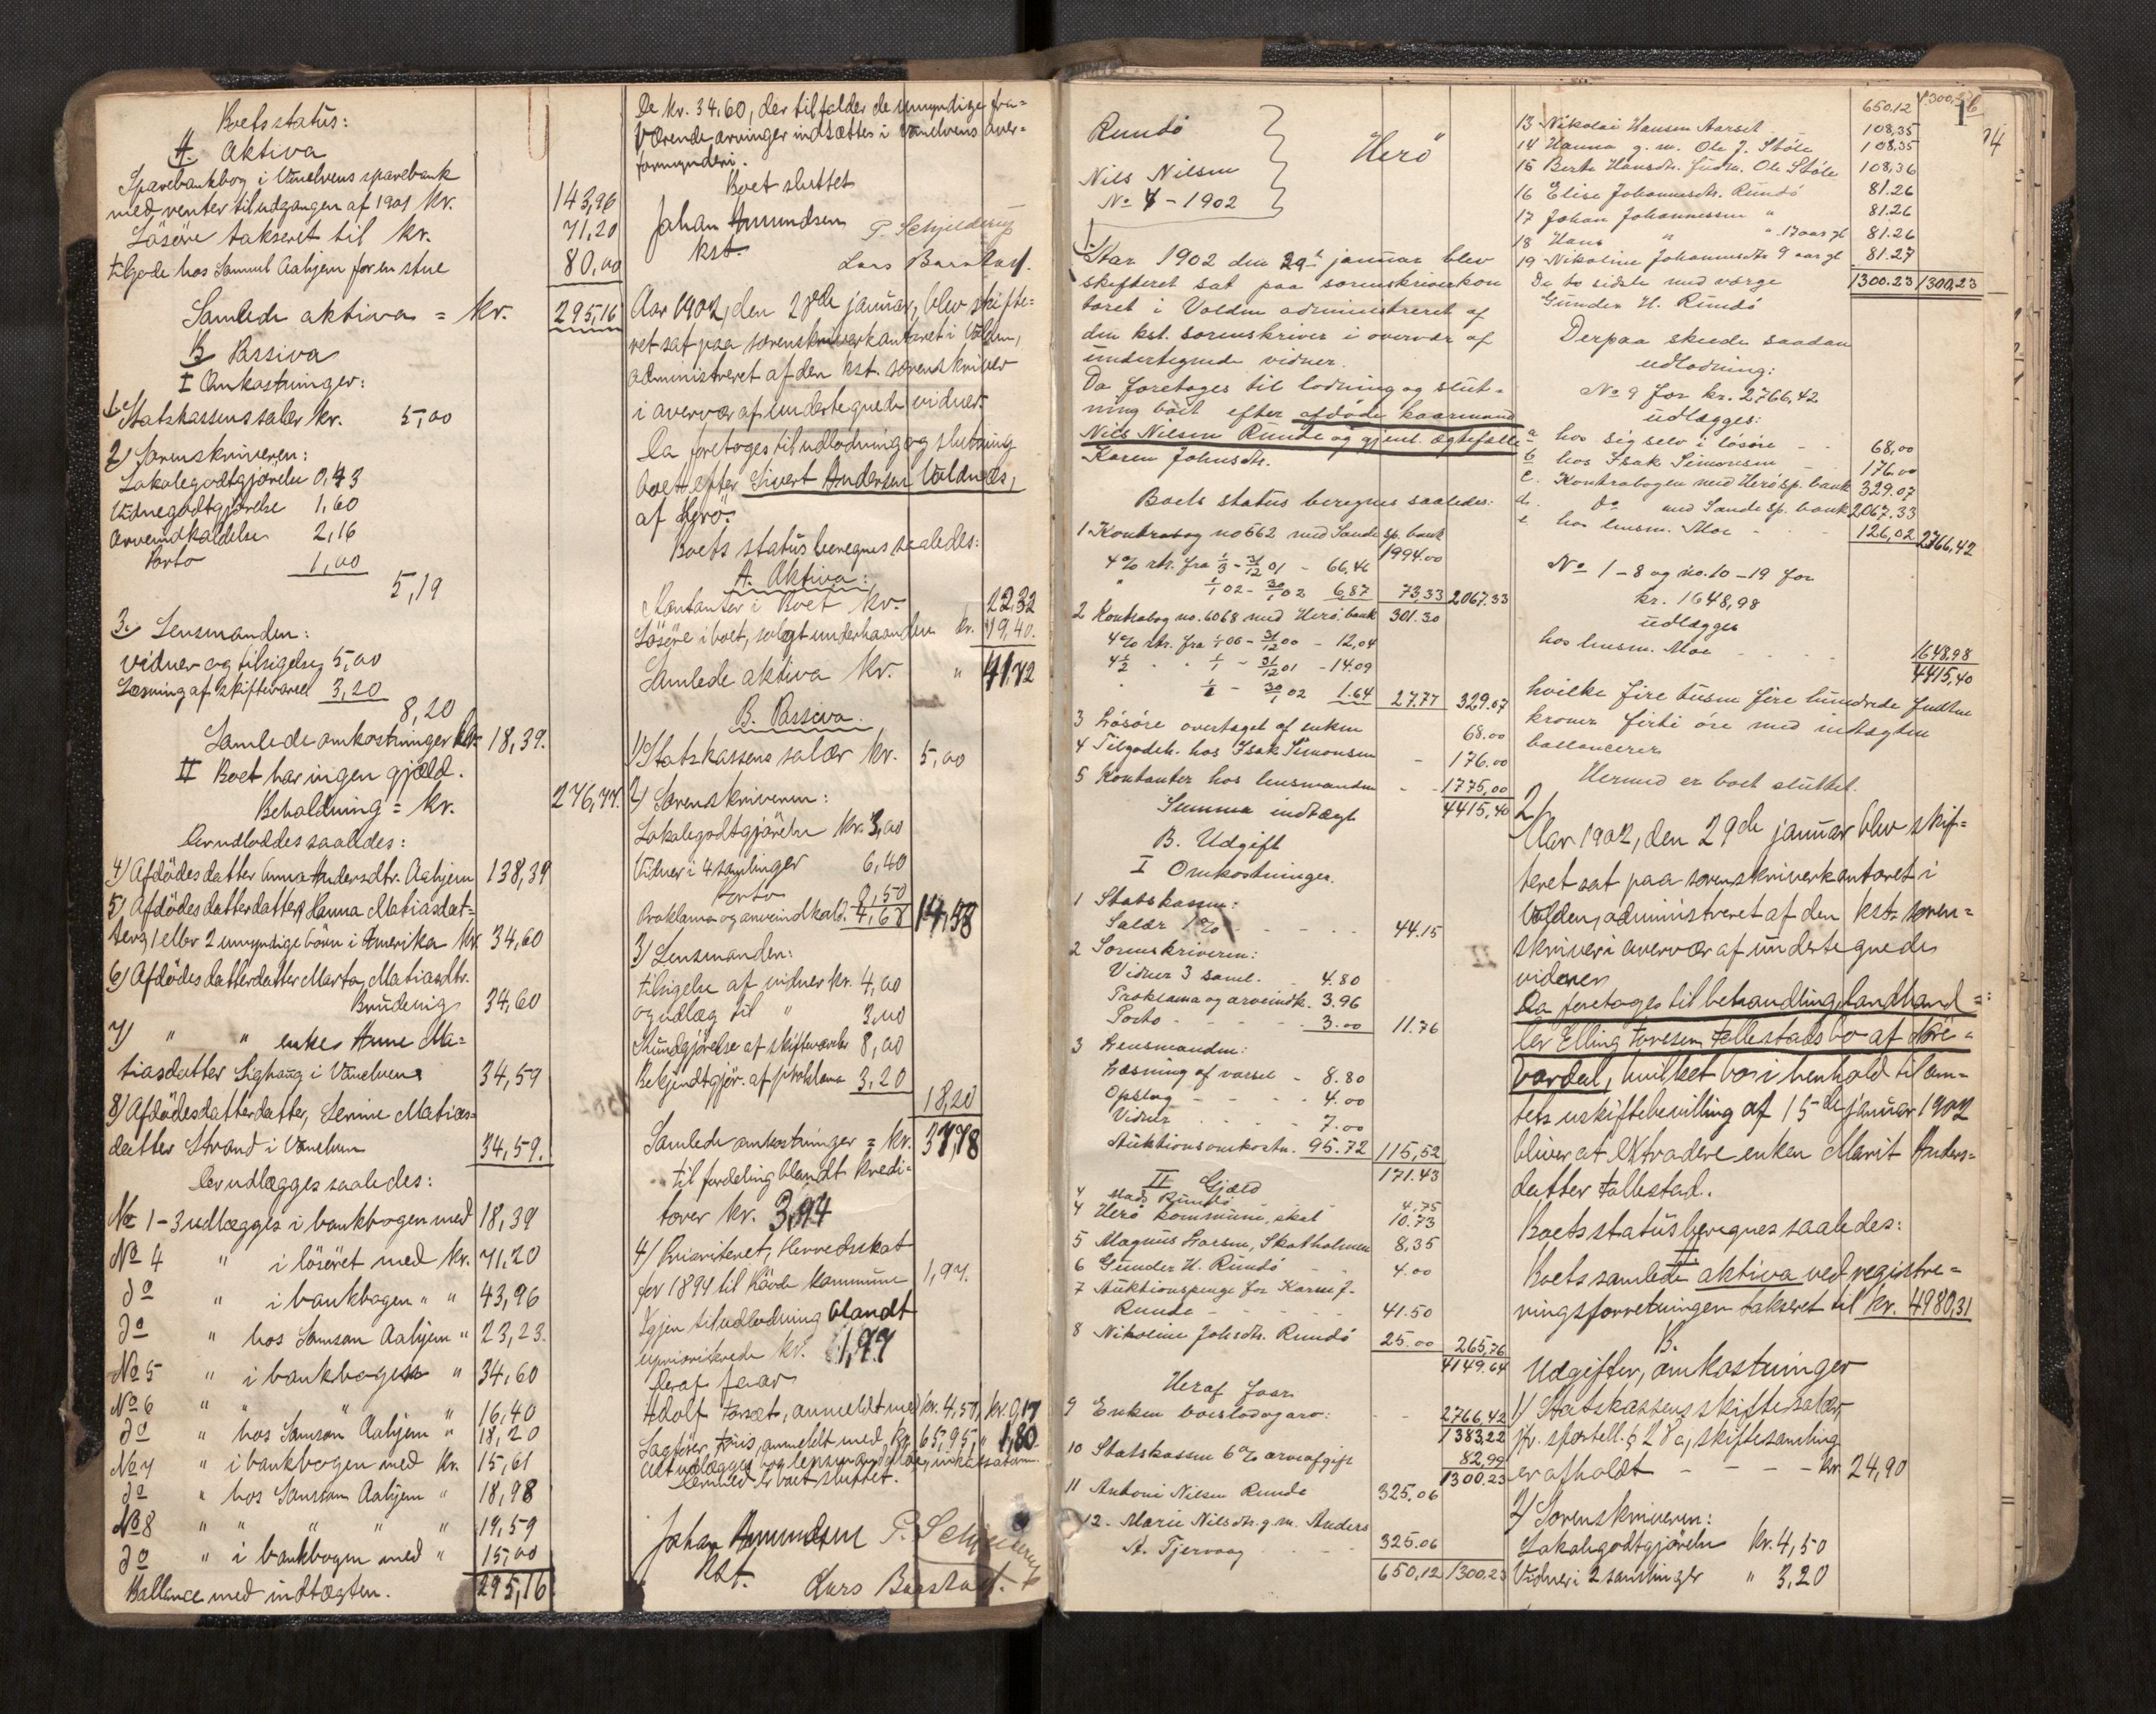 Boets status:
A. Aktiva
Sparebankbog i Vanelvens sparebank
med renter til udgangen af 1901 kr. 143,96
Løsøre takseret til kr. 71,20
tilgode hos Samuel Aahjem for en stue 80,00
Samlede aktiva = kr. 295,16
B Passiva
I Omkostninger:
1. Statskassens salær kr. 5,00
2) Sorenskriveren:
Lokalegodtgjørelse 0,43
Vidnegodtgjørelse 1,60
Arveindkaldelse 2,16
Porto 1,00
5,19
3. Lensmanden:
Vidner og tilsigelse 5,00
Læsning af skiftevarsel 3,20
8,20
Samlede omkostninger kr. 18,39.
II Boet har ingen gjæld.
Beholdning = kr. 276,77.
der udloddes saaledes:
4) Afdødes datter Anna Andersdtr. Aahjem 138,39
5) Afdødes datterdatter Hanna Matiasdat=
ters 1 eller 2 umyndige børn i Amerika kr. 34,60
6) Afdødes datterdatter Marta Matiasdtr.
Brudevig 34,60
7) " " enke Anne Ma=
tiasdatter Sighaug i Vanelven 34,59
8) Afdødes datterdatter, Serine Matias=
datter Strand i Vanelven 34,59.
der udlægges saaledes:
No 1-3 udlægges i bankbogen med 18,39
No 4 " i løsøret med kr. 71,20
do " i bankbogen " " 43,96
do " hos Samson Aahjem " 23,23.
No 5 " i bankbogen " 34,60
No 6 " " " " 16,40
do " hos Samson Aahjem " 18,20
No 7 " i bankbogen med kr. 15,61
do " hos Samson Aahjem " 18,98
No 8 " " " " " 19,59
do " i bankbogen med " 15,00
Ballance med indtægten. 295,16
De kr. 34,60, der tilfalder de umyndige fra=
værende arvinger indsættes i Vanelvens over=
formynderi.
Boet sluttet
Johan Amundsen P. Schjelderup
kst. Lars Baarstad.
Aar 1902, den 28de januar, blev skifte=
ret sat paa sorenskriverkontoret i Volden,
administreret af den kst. sorenskriver
i overvær af undertegnede vidner.
Da foretoges til udlodning og slutning
boet efter Sivert Andersen Voldnes,
af Herø.
Boets status beregnes saaledes:
A. Aktiva:
Kontanter i Boet kr. 22,32
Løsøre i boet, solgt underhaanden kr. 19,40.
Samlede aktiva kr. " 41,72
B. Passiva.
1) Statskassens salær kr. 5,00
2) Sorenskriveren:
Lokalegodtgjørelse kr. 3,00
Vidner i 4 samlinger 6,40
Porto 0,50
Proklama og arveindkald. 4,68 14,58
3) Lensmanden:
tilsigelse af vidner kr. 4,00
og udlæg til " 3,00
Kundgjørelse af skiftevarsler 8,00
Bekjendtgjør. af proklama 3,20
18,20
Samlede omkostninger = kr. 37,78
til fordeling blandt kredi=
torer kr. 3,94
4) Prioriteret, Herredsskat
for 1894 til Rovde kommune 1,97.
Igjen til udlodning blandt
uprioriterede kr. 1,97
deraf faar
Adolf Aarset, anmeldt med kr. 4,57, kr. 0,17
Sagfører Friis, anmeldt med kr. 65,95, " 1,80
Alt udlægges hos lensmand Moe, inkassator.
Hermed er boet sluttet.
Johan Amundsen P. Schjelderup
kst. Lars Baarstad.
Rundø
Nils Nilsen
No 4 - 1902
"Herø"
1.
Aar 1902 den 29de januar blev
skifteret sat paa sorenskriverkon
toret i Volden administreret af
den kst. sorenskriver i overvær af
undertegnede vidner.
Da foretoges til lodning og slut-
ning boet efter afdøde kaarmand
Nils Nilsen Runde og gjenl. ægtefælle
Karen Johnsdtr.
Boets status beregnes saaledes:
1 Kontrabog no 562 med Sande sp. bank 1994.00
4% rtr. fra 1/3 - 31/12 01 - 66.46
" 1/1 02 - 30/1 02 6,87 73,33 2067.33
2 Kontrabog no. 6068 med Herø bank 301.30
4% rtr. fra 1/1 00 - 31/12 00 - 12,04
4½ " " 1/1 - 31/12 01 - 14.09
" 1/1 - 30/1 02 1.64 27.77 329.07
3 Løsøre overtaget af enken 68.00
4 Tilgodeh. hos Isak Simonsen - 176.00
5 Kontanter hos lensmanden - - 1775,00
Summa indtægt 4415,40
B. Udgift
I Omkostninger.
1 Statskassen:
Salær 1% - - - - 44.15
2 Sorenskriveren:
Vidner 3 saml. - 4.80
Proklama og arveindk. 3.96
Porto - - - - 3.00 11.76
3 Lensmanden:
Læsning af varsel - 8.80
Opslag - - - 4.00
Vidner - - - 7.00
Auktionsomkostn. 95.72 115,52
171.43
II Gjæld
4 Mads Rundø 4,75
4 Herø kommune, skat 10.73
5 Magnus Larsen, Skotholmen 8,35
6 Gunder H. Rundø - - 4.00
7 Auktionspenge for Karen J.
Runde - - - - 41.50
8 Nikoline Johsdtr. Rundø 25.00 265,76
4149.64
Heraf faar
9 Enken boeslod og arv: - - 2766,42
1383,22
10 Statskassen 6% arveafgift 82,99
1300.23
11 Antoni Nilsen Runde 325.06
12. Marie Nilsdtr. g. m. Anders
A. Tjervaag 325.06
650,12 1300.23
14
650.12 1300,23
13 Nikolai Hansen Aarset 108,35
14 Hanna g. m. Ole J. Støle 108,35
15 Berte Hansdtr. Gudm. Ole Støle 108,36
16 Elise Johannesdtr. Rundø 81.26
17 Johan Johannessen " 81.26
18 Hans " " 17 aar gl 81.26
19 Nikoline Johannesdtr 9 aar gl 81.27
De to sidste med værge 1300.23 1300,23
Gunder H. Rundø
Derpaa skede saadan
udlodning:
No 9 for kr. 2766,42
udlægges:
a hos sig selv i løsøre - - 68,00
b hos Isak Simonsen - 176.00
c. Kontrabogen med Herø sp. bank 329.07
d. do med Sande sp. bank 2067.33
e. hos lensm. Moe - - - 126,02 2766,42
No 1-8 og no. 10-19 for
kr. 1648,98
udlægges
hos lensm. Moe - - - 1648,98
4415,40
hvilke fire tusen fire hundrede femten
kroner firti øre med indtægten
ballancerer
Hermed er boet sluttet.
2/
Aar 1902, den 29de januar blev skif=
teret sat paa sorenskriverkontoret i
Volden, administreret af den kst. soren=
skriver i overvær af undertegnede
vidner
Da foretoges til behandling landhand=
ler Elling Toresen Follestads bo af Nore-
vardal, hvilket bo i henhold til am=
tets uskiftebevilling af 15de januar 1902
bliver at extradere enken Marit Anders=
datter Follestad.
Boets status beregnes saaledes:
A.
Boets samlede aktiva ved registre=
ringsforretningen takseret til kr. 4980,31
B.
Udgifter, omkostninger
1) Statskassens skiftesalær,
jfr. sportell. § 28 a, skiftesamling
er afholdt - - - - kr 24,90
2) Sorenskriveren:
Lokalegodtgjørelse kr. 4,50
Vidner i 2 samlinger " 3,20